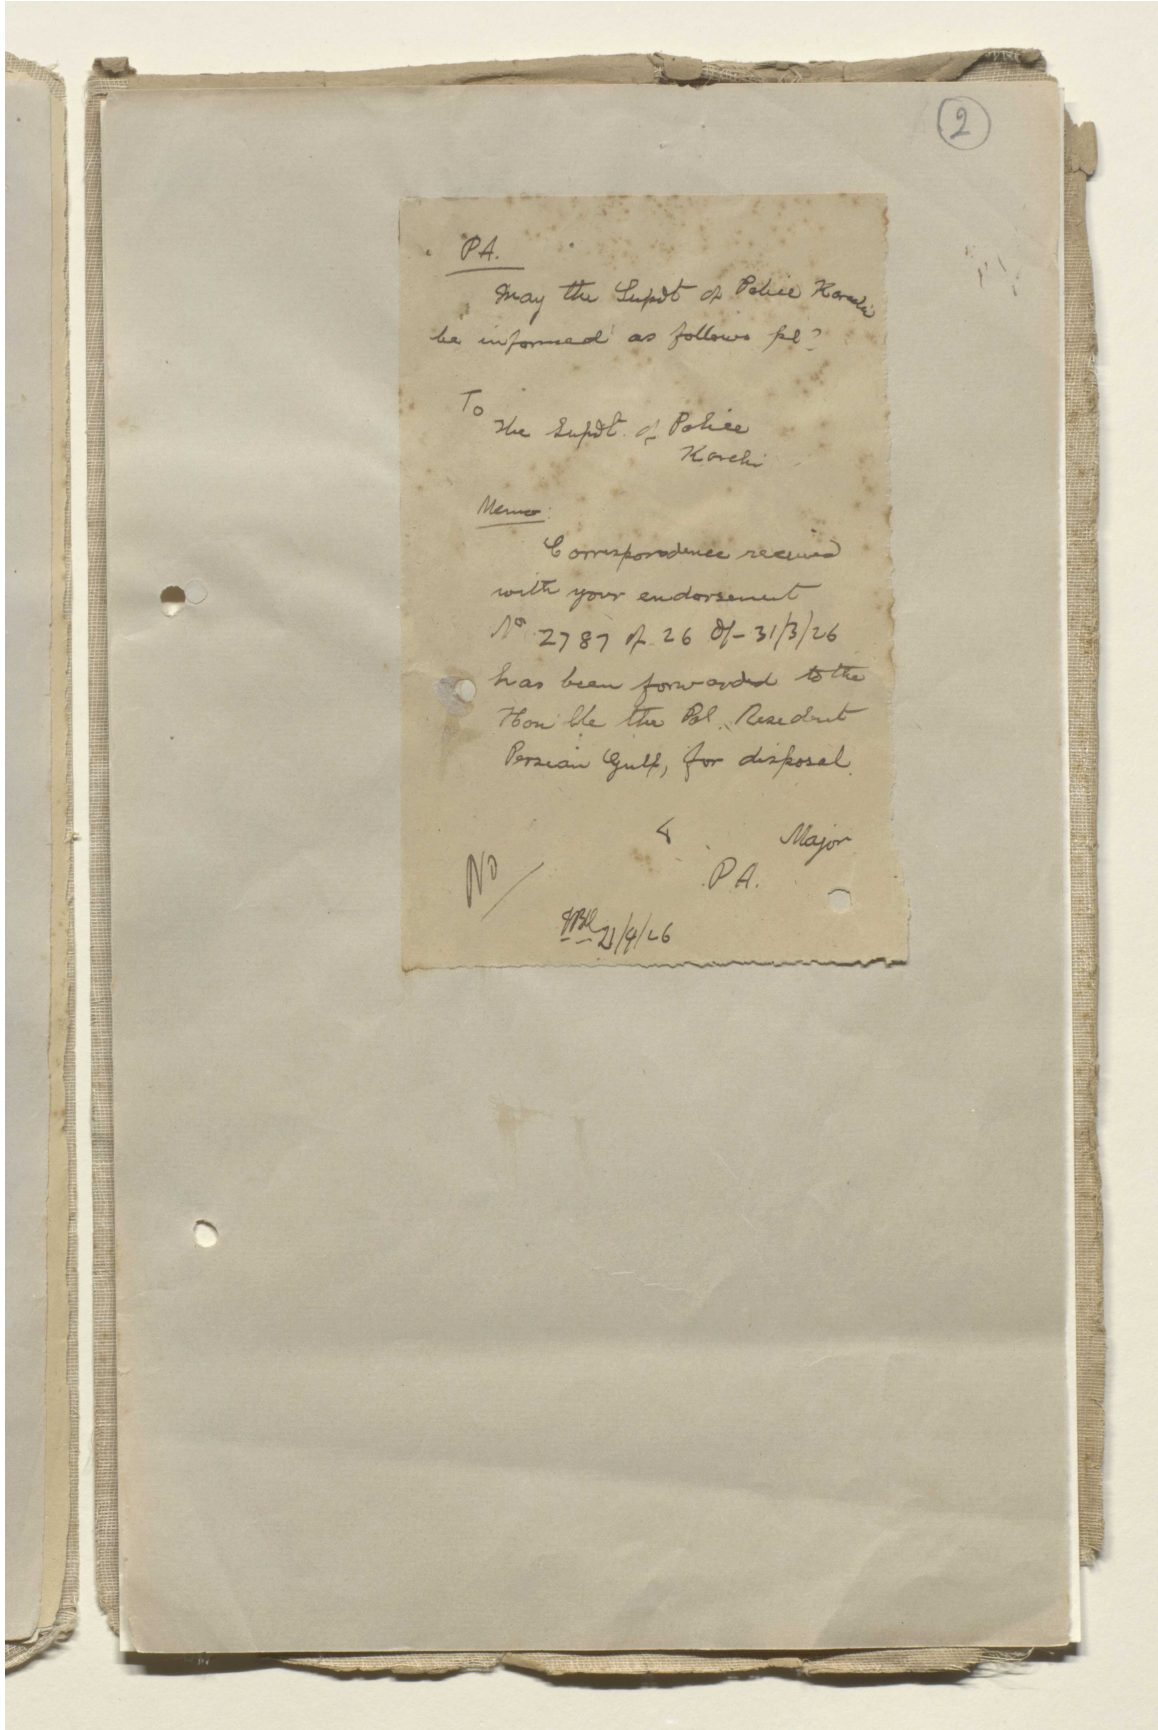 2
P.A.
May the Supdt of Police Karachi
be informed as follows pl?
To
The Supdt. of Police
Karchi
Memo:
Correspondence received
with your endorsement
No 2787 of 26 d/- 31/3/26
has been forwarded to the
Hon'ble the Pol. Resident
Persian Gulf, for disposal.
Major
P.A.
No
21/4/26